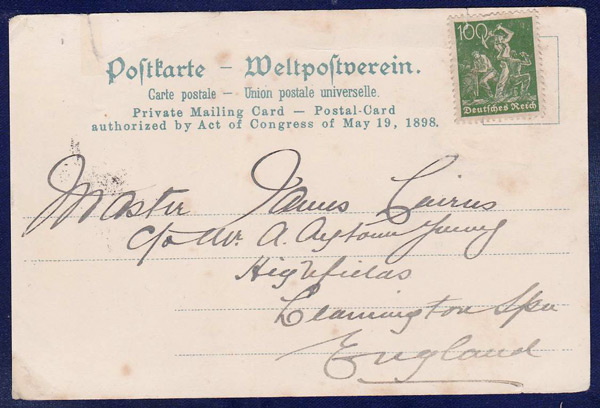 100
Deutsches Reich
Postkarte – Weltpostverein.
Carte postale – Union postale universelle.
Private Mailing Card – Postal-Card
authorized by Act of Congress of May 19, 1898.
Master James Cairns
c/o Mr. A. Aytoun Young
Highfields
Leamington Spa
England